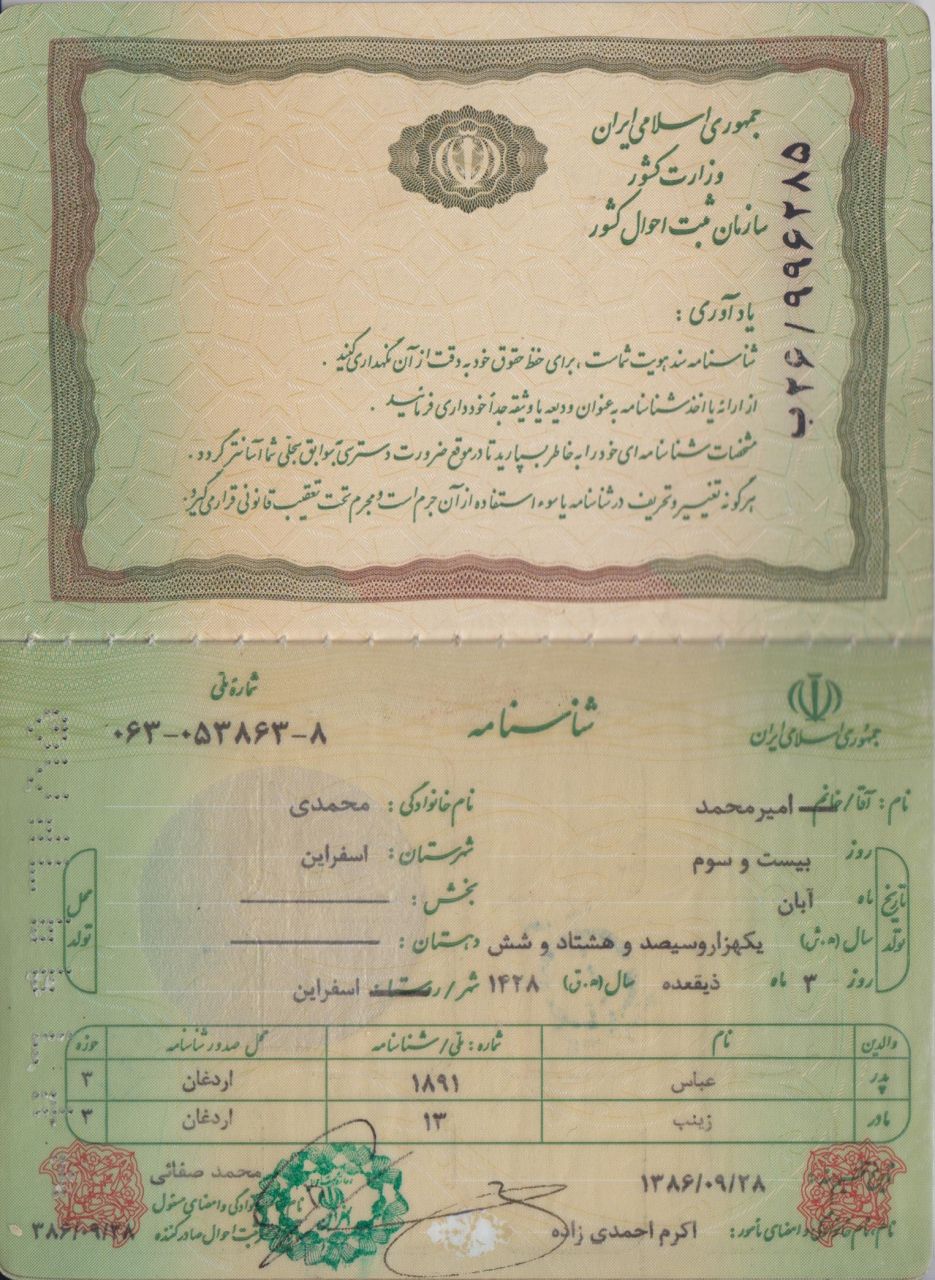 جمهوری اسلامی ایران
وزارت کشور
سازمان ثبت احوال کشور
ب۲۶/۹۹۶۲۸۵
یادآوری :
شناسنامه سند هویت شماست ، برای حفظ حقوق خود به دقت از آن نگهداری کنید .
از ارائه یا اخذ شناسنامه به عنوان ودیعه یا وثیقه جداً خودداری فرمائید .
مشخصات شناسنامه ای خود را به خاطر بسپارید تا در موقع ضرورت دسترسی بسوابق سجلی شما آسانتر گردد .
هرگونه تغییر و تحریف در شناسنامه یا سوء استفاده از آن جرم است و مجرم تحت تعقیب قانونی قرار می‌گیرد.
جمهوری اسلامی ایران
شناسنامه
شمارهٔ ملی
۰۶۳-۰۵۳۸۶۳-۸
نام : آقا/خانم امیرمحمد نام خانوادگی : محمدی
تاریخ تولد
روز بیست و سوم
ماه آبان
سال (ه.ش) یکهزاروسیصد و هشتاد و شش
روز ۳ ماه ذیقعده سال (ه.ق) ۱۴۲۸
محل تولد
شهرستان : اسفراین
بخش :
دهستان :
شهر/روستا اسفراین
والدین نام شماره : ملی/شناسنامه محل صدور شناسنامه حوزه
پدر عباس ۱۸۹۱ اردغان ۳
مادر زینب ۱۳ اردغان ۳
۱۳۸۶/۰۹/۲۸
نام، نام خانوادگی و امضای مأمور : اکرم احمدی زاده
محمد صفائی
نام خانوادگی و امضای مسئول
ثبت احوال صادرکننده
۳۸۶/۰۹/۲۸